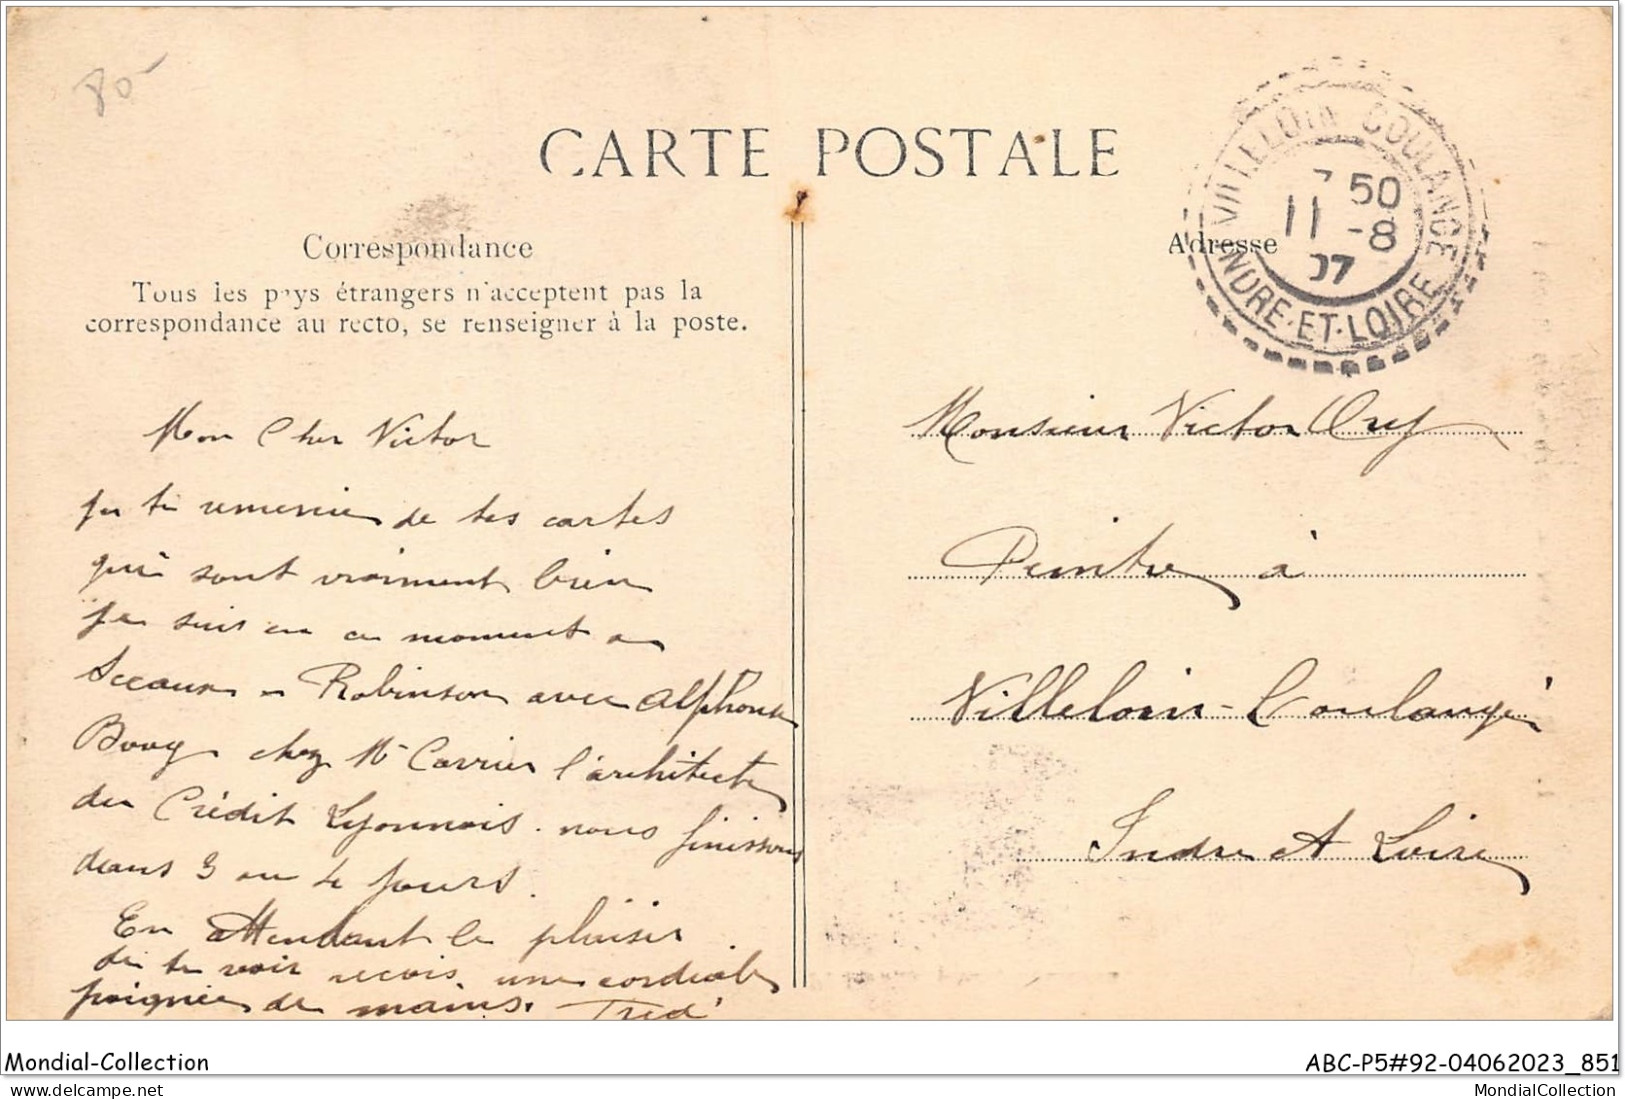 80-
CARTE POSTALE
VILLELOIN COULANGÉ
7 50
11 -8
07
INDRE-ET-LOIRE
Correspondance
Adresse
Tous les pays étrangers n'acceptent pas la
correspondance au recto, se renseigner à la poste.
Mon Cher Victor
je te remercie de tes cartes
qui sont vraiment bien
je suis en ce moment a
Sceaux - Robinson avec Alphonse
chez Mr Carrier l'architecte
du Crédit Lyonnais. nous finissons
dans 3 ou 4 jours.
En attendant le plaisir
de te voir recois une cordiale
poignée de mains.
Monsieur Victor
Peintre à
Villeloin-Coulangé
Indre et Loire
Mondial-Collection
ABC-P5#92-04062023_851
delcampe.net
MondialCollection